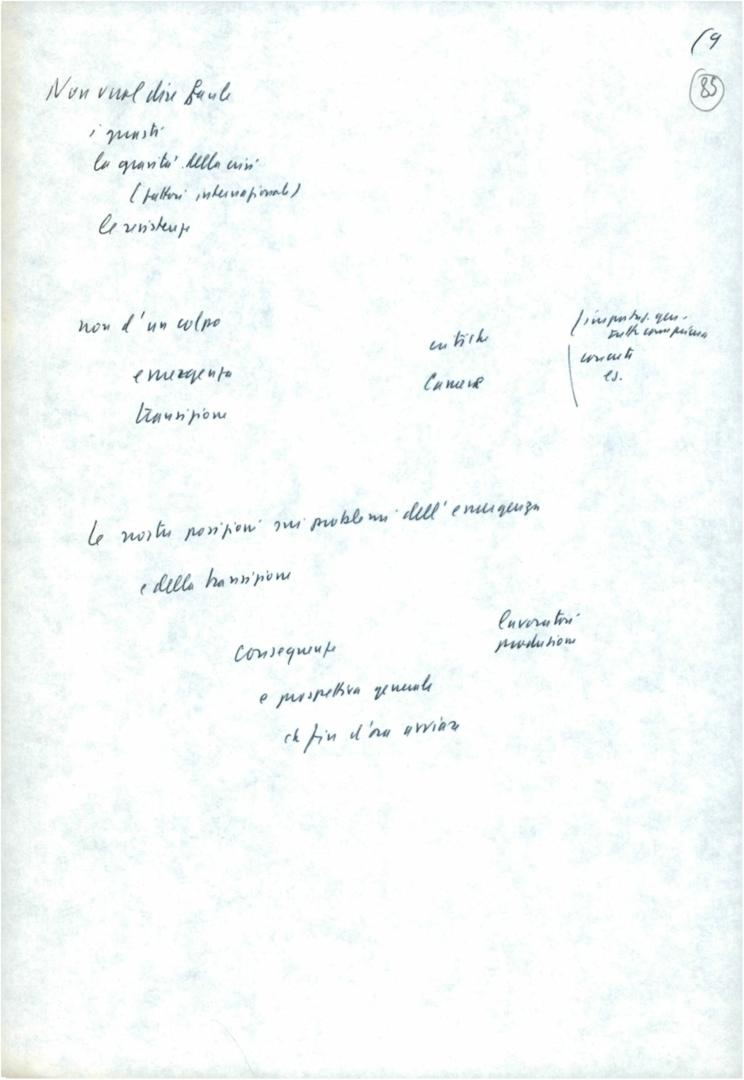 19
85
Non vuol dire facile
i guasti
la gravità della crisi
(fattori internazionali)
le resistenze
non d'un colpo
emergenza
transizione
critiche
Camere
concreti
es.
le nostre posizioni sui problemi dell'emergenza
e della transizione
conseguente
e prospettiva generale
da fin d'ora avviare
lavoratori
produzione